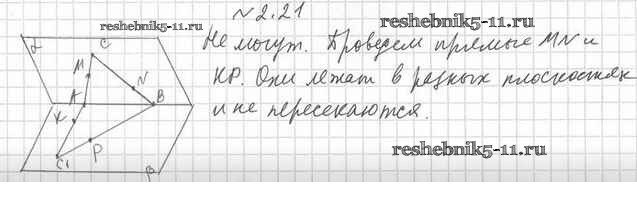 № 2.21
reshebnik5-11.ru
reshebnik5-11.ru
Не могут. Проведем прямые MN и
KP. Они лежат в разных плоскостях
и не пересекаются.
reshebnik5-11.ru
α
C
M
N
A
B
K
P
C₁
β